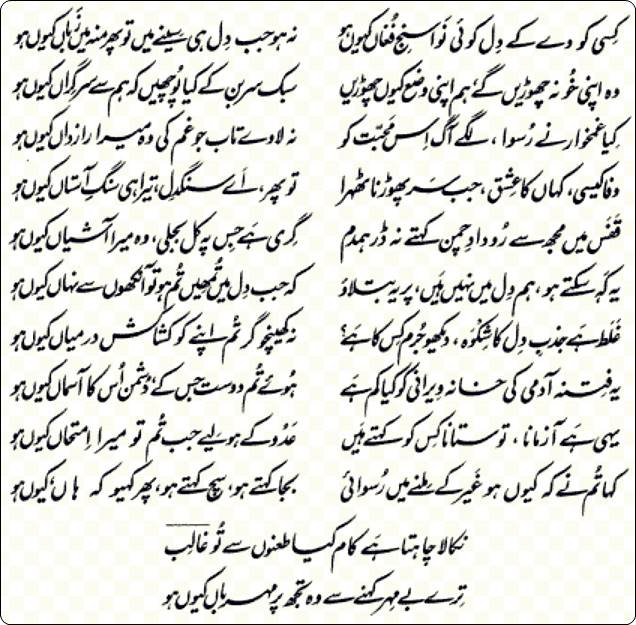 کسی کو دے کے دل کوئی نوا سنجِ فغاں کیوں ہو
نہ ہو جب دل ہی سینے میں تو پھر منہ میں زباں کیوں ہو
وہ اپنی خُو نہ چھوڑیں گے ہم اپنی وضع کیوں چھوڑیں
سبک سر بن کے کیا پوچھیں کہ ہم سے سرگراں کیوں ہو
کیا غمخوار نے رُسوا، لگے آگ اس محبّت کو
نہ لاوے تاب جو غم کی وہ میرا رازداں کیوں ہو
وفا کیسی، کہاں کا عشق، جب سر پھوڑنا ٹھہرا
تو پھر، اَے سنگدل، تیرا ہی سنگِ آستاں کیوں ہو
قفَس میں مجھ سے رُودادِ چمن کہتے نہ ڈر ہمدم
گری ہَے جس پہ کل بجلی، وہ میرا آشیاں کیوں ہو
یہ کہہ سکتے ہو، ہم دل میں نہیں ہَیں، پر یہ بتلاؤ
کہ جب دل میں تُمھیں تُم ہو تو آنکھوں سے نہاں کیوں ہو
غلَط ہَے جذبِ دل کا شکوَہ، دیکھو جُرم کس کا ہَے؟
نہ کھینچو گر تُم اپنے کو کشاکش درمیاں کیوں ہو
یہ فِتنہ آدمی کی خانہ ویرانی کو کیا کم ہَے
ہُوئے تُم دوست جس کے دُشمن اُس کا آسماں کیوں ہو
یہی ہَے آزمانا، تو ستانا کِس کو کہتے ہَیں
عَدُو کے ہو لیے جب تُم تو میرا اِمتحاں کیوں ہو
کہا تُم نے کہ کیوں ہو غَیر کے ملنے میں رُسوائی
بجا کہتے ہو، سچ کہتے ہو، پھر کہیو کہ ہاں کیوں ہو
نکالا چاہتا ہَے کام کیا طعنوں سے تُو غالب
تِرے بے مہر کہنے سے وہ تجھ پر مہرباں کیوں ہو